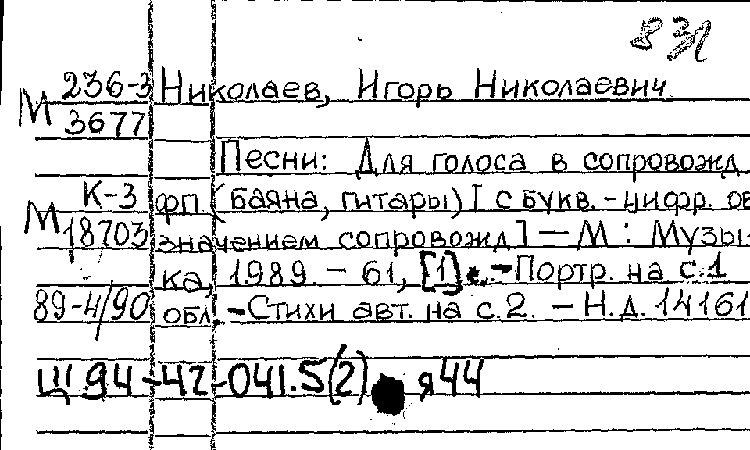 832
М 236-3 Николаев, Игорь Николаевич
3677
Песни: Для голоса в сопровожд
М К-3 фп. (баяна, гитары) [с букв.-цифр. об
18703 значением сопровожд] — М: Музы-
ка, 1989. - 61, [1] с. - Портр. на с.1
89-4/90 обл. - Стихи авт. на с.2. - Н.д. 14161
Ц 94-42-041.5(2) я44